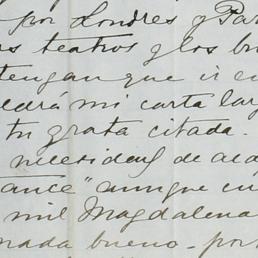 por Londres y Par
s teatros y los bu
tengan que ir en
ldrá mi carta lar
tu grata citada.
necesidad de aco
tance" aunque en
mil Magdalena
nada bueno - por